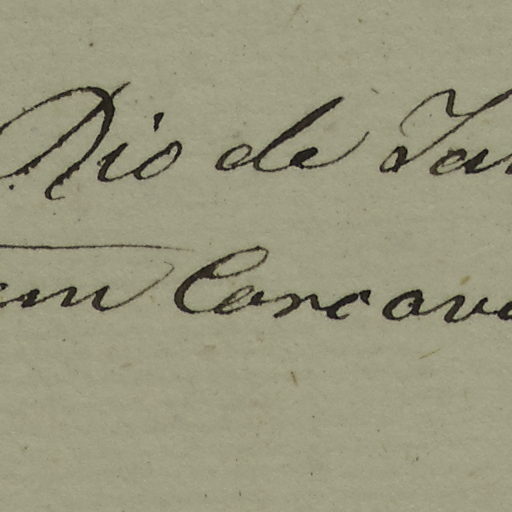 Rio de Jan
em Corcova